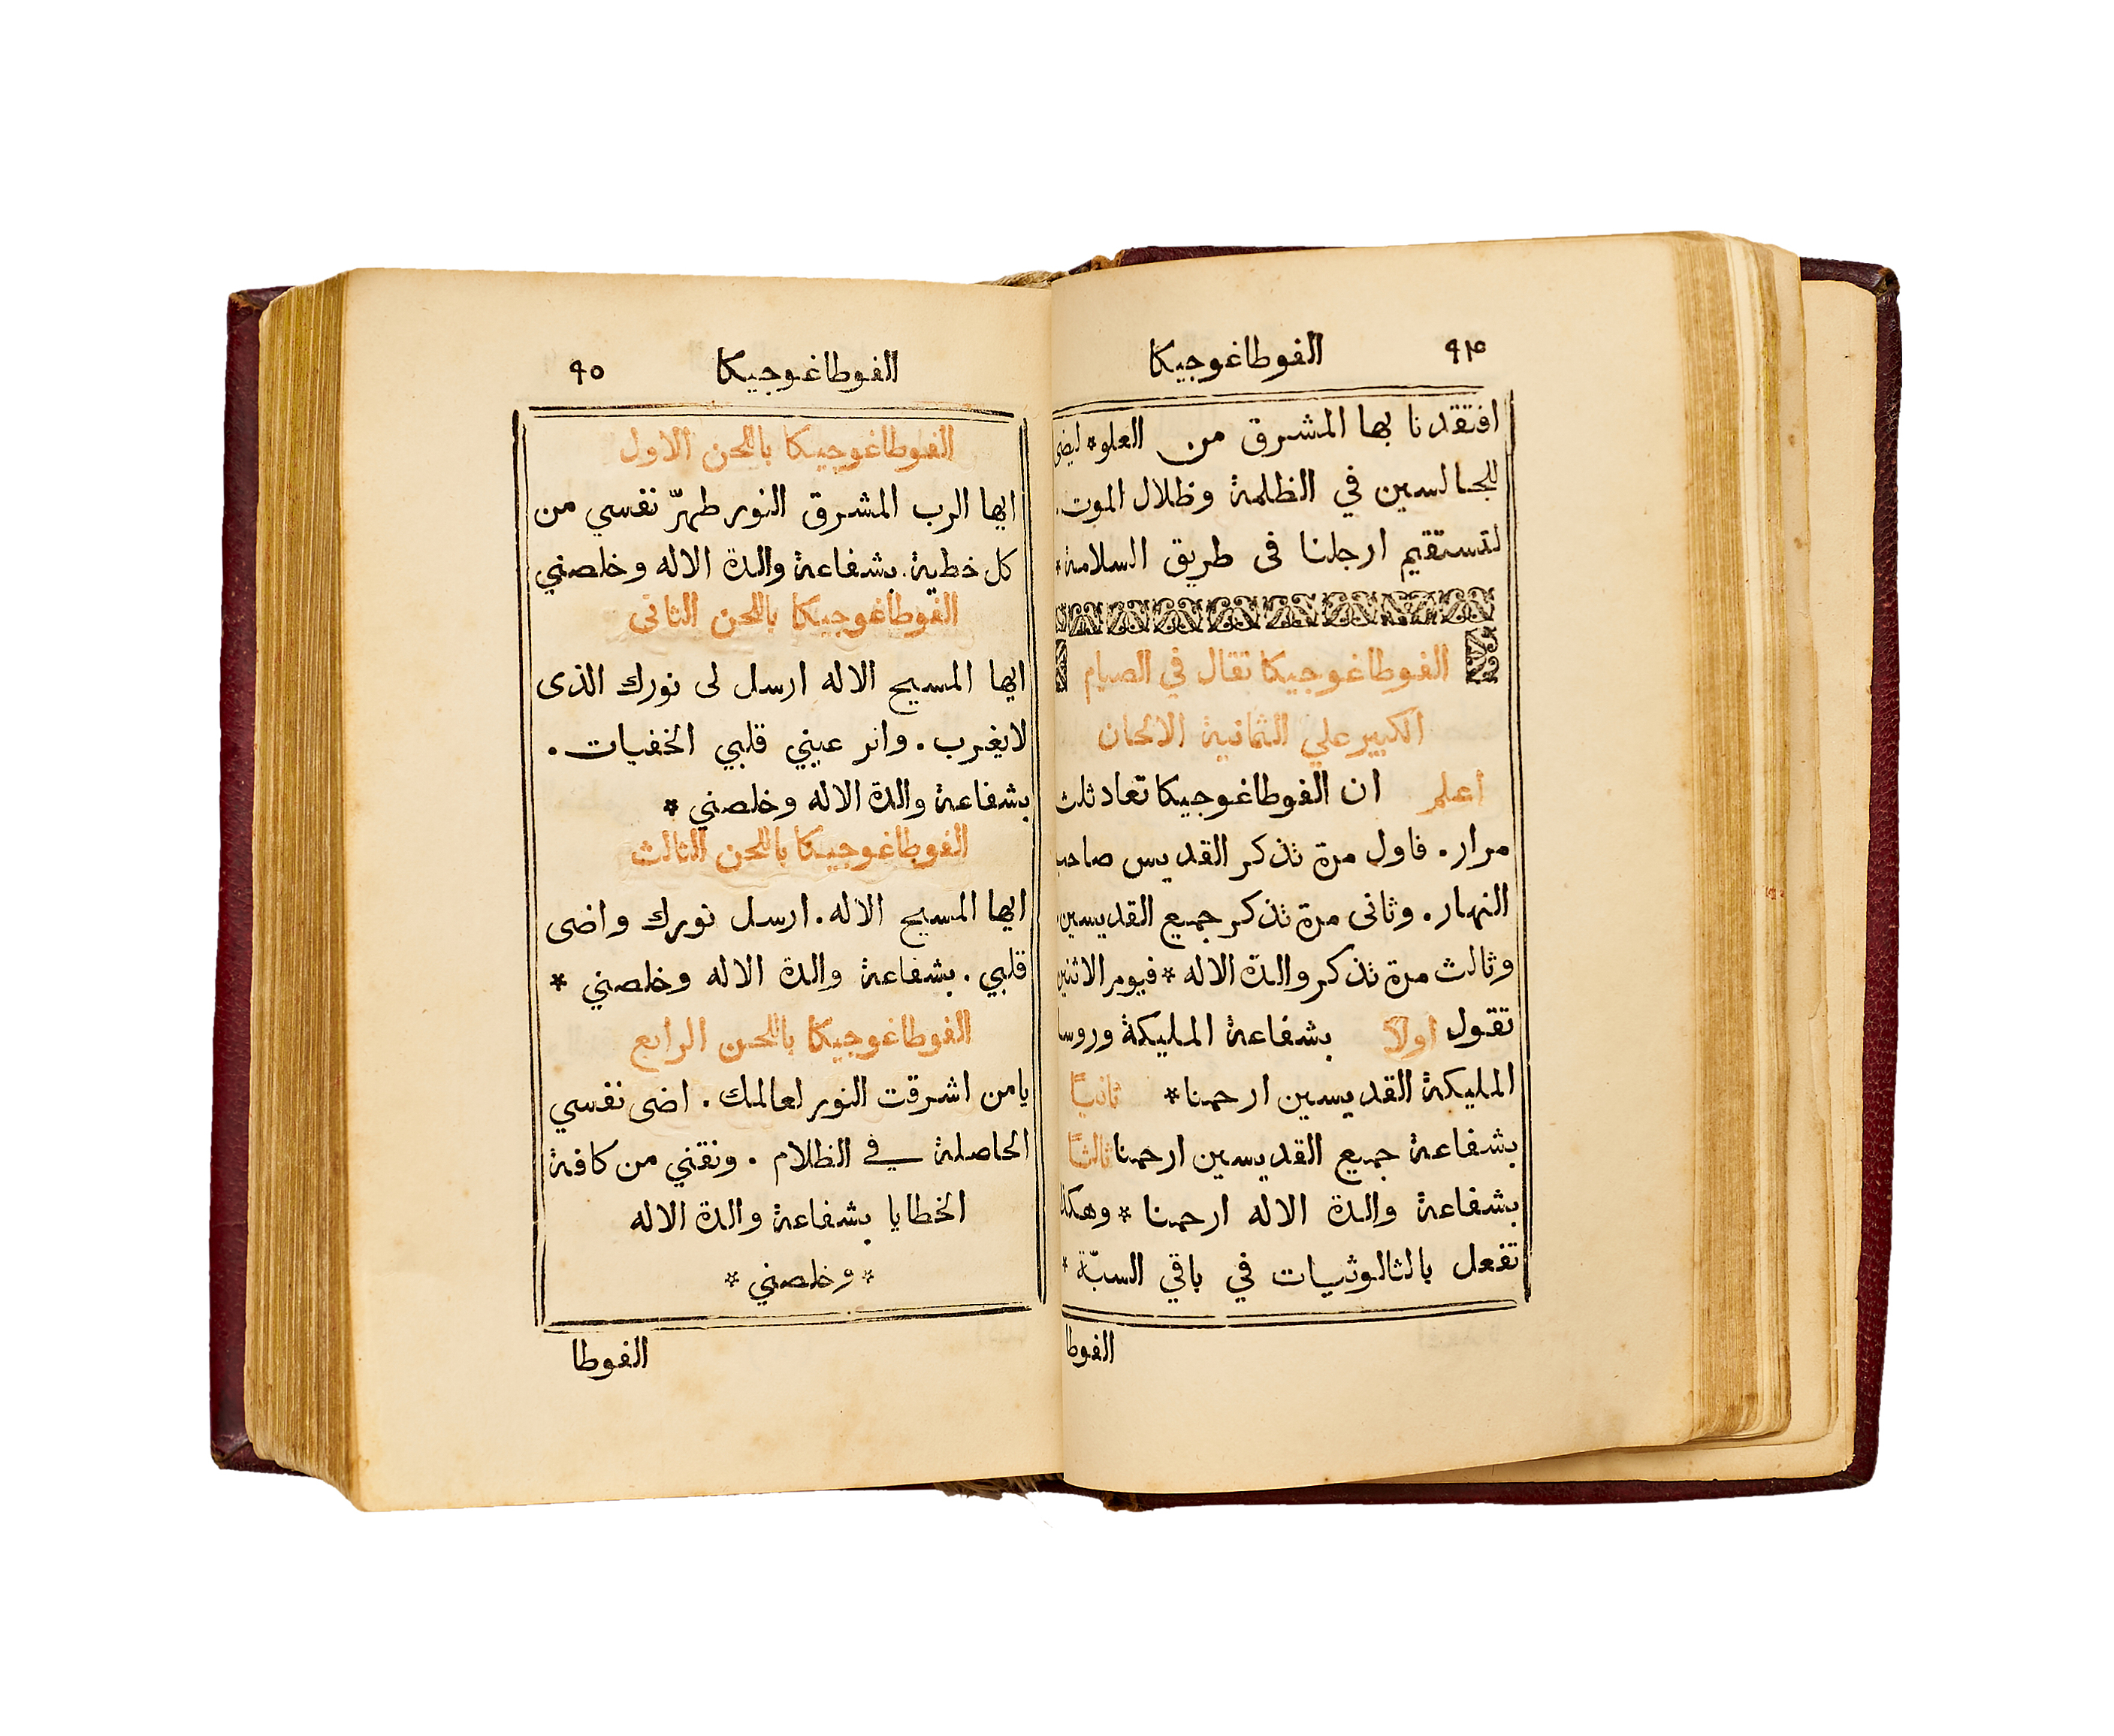 ٩٤ الفوطاغوجيكا
افتقدنا بها المشرق من العلو * ليضى
للجالسين في الظلمة وظلال الموت.
لتستقيم ارجلنا فى طريق السلامة *
الفوطاغوجيكا تقال في الصيام
الكبير علي الثمانية الالحان
اعلم ان الفوطاغوجيكا تعاد ثلث
مرار. فاول مرة تذكر القديس صاحب
النهار. وثانى مرة تذكر جميع القديسين
وثالث مرة تذكر والدة الاله * فيوم الاثنين
تقول اولاً بشفاعة المليكة وروسا
المليكة القديسين ارحمنا * ثانيًا
بشفاعة جميع القديسين ارحمنا ثالثًا
بشفاعة والدة الاله ارحمنا * وهكذا
تفعل بالثالوثيات في باقي السبّة *
الفوطا
الفوطاغوجيكا ٩٥
الفوطاغوجيكا باللحن الاول
ايها الرب المشرق النور طهرّ نفسي من
كل خطية. بشفاعة والدة الاله وخلصني
الفوطاغوجيكا باللحن الثانى
ايها المسيح الاله ارسل لى نورك الذى
لايغرب. وانر عيني قلبي الخفيات.
بشفاعة والدة الاله وخلصني *
الفوطاغوجيكا باللحن الثالث
ايها المسيح الاله. ارسل نورك واضى
قلبي. بشفاعة والدة الاله وخلصني *
الفوطاغوجيكا باللحن الرابع
يامن اشرقت النور لعالمك. اضى نفسي
الحاصلة في الظلام. ونقني من كافة
الخطايا بشفاعة والدة الاله
* وخلصني *
الفوطا